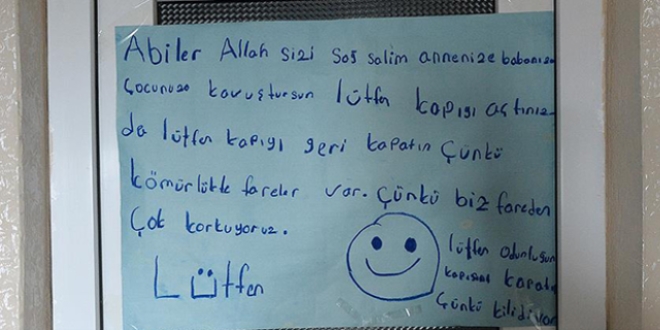 Abiler Allah sizi Sağ salim annenize babanıza
Çocunuza kavuştursun lütfen kapıyı açtınız
da lütfen kapıyı geri kapatın Çünkü
kömürlükte fareler var. Çünkü biz fareden
Çok korkuyoruz.
Lütfen
lütfen odunluğun
kapısını kapatın
Çünkü kilidi var